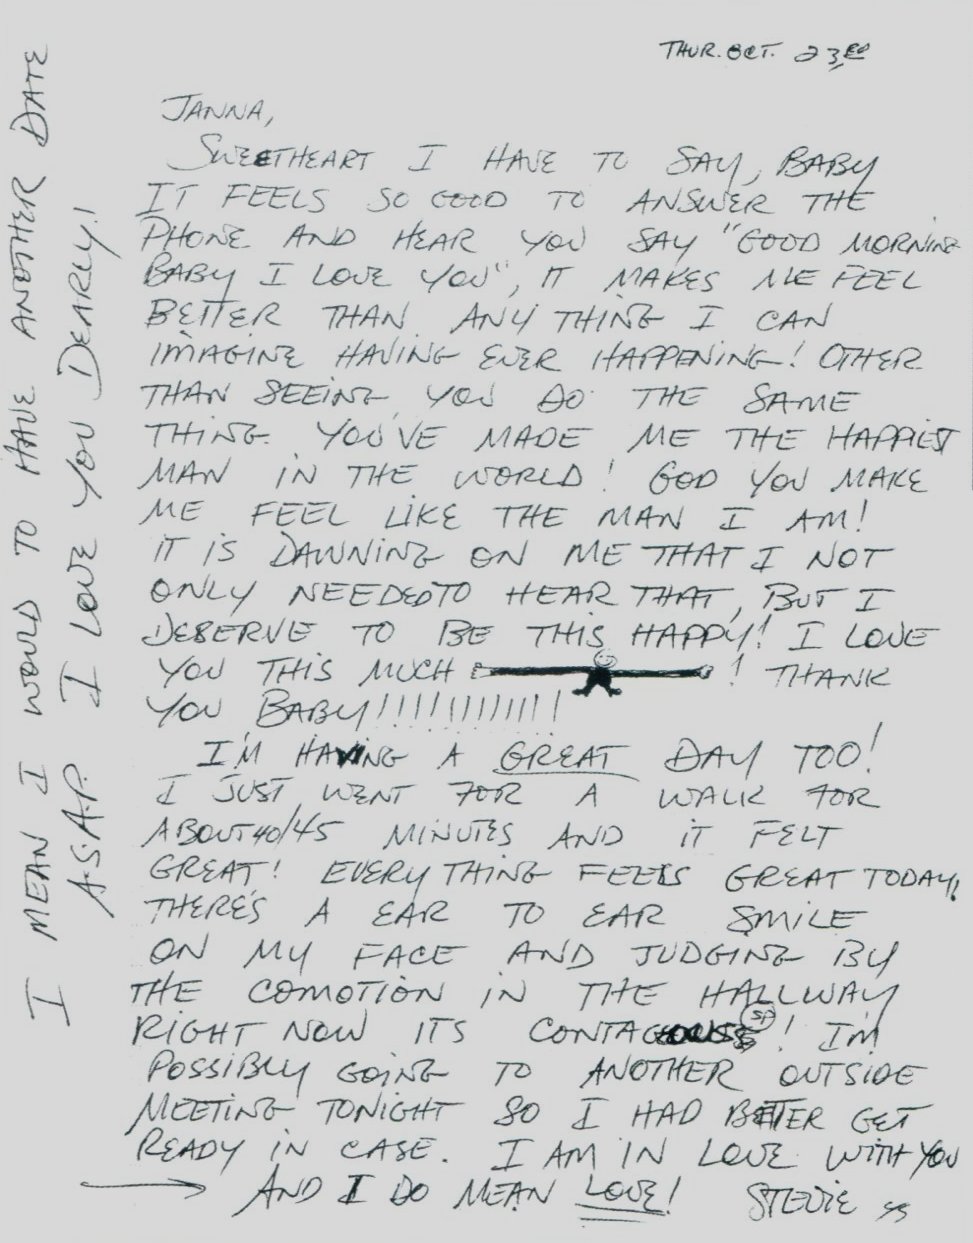 THUR. OCT. 23,
JANNA,
SWEETHEART I HAVE TO SAY, BABY
IT FEELS SO GOOD TO ANSWER THE
PHONE AND HEAR YOU SAY "GOOD MORNING
BABY I LOVE YOU", IT MAKES ME FEEL
BETTER THAN ANY THING I CAN
IMAGINE HAVING EVER HAPPENING! OTHER
THAN SEEING YOU DO THE SAME
THING. YOU'VE MADE ME THE HAPPIEST
MAN IN THE WORLD! GOD YOU MAKE
ME FEEL LIKE THE MAN I AM!
IT IS DAWNING ON ME THAT I NOT
ONLY NEEDED TO HEAR THAT, BUT I
DESERVE TO BE THIS HAPPY! I LOVE
YOU THIS MUCH ! THANK
YOU BABY!!!!!!!!!!!!
I'M HAVING A GREAT DAY TOO!
I JUST WENT FOR A WALK FOR
ABOUT 40/45 MINUTES AND IT FELT
GREAT! EVERY THING FEELS GREAT TODAY!
THERE'S A EAR TO EAR SMILE
ON MY FACE AND JUDGING BY
THE COMOTION IN THE HALLWAY
RIGHT NOW ITS CONTAGOUS SP! I'M
POSSIBLY GOING TO ANOTHER OUTSIDE
MEETING TONIGHT SO I HAD BETTER GET
READY IN CASE. I AM IN LOVE WITH YOU
AND I DO MEAN LOVE! STEVIE
I MEAN I WOULD TO HAVE ANOTHER DATE
A.S.A.P. I LOVE YOU DEARLY!